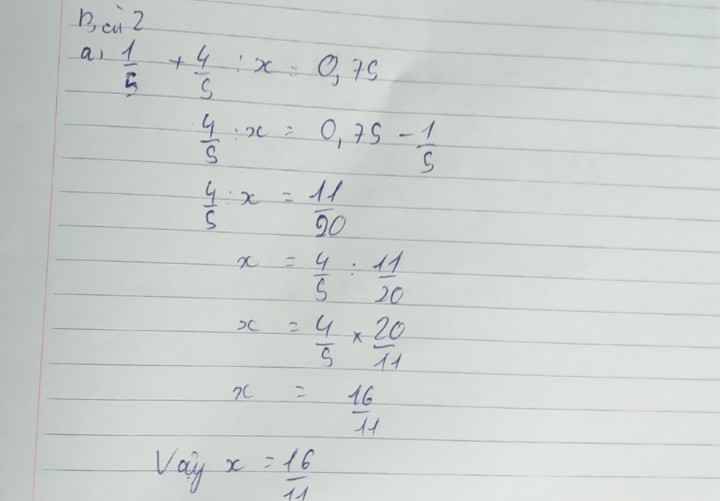 Bài 2
a, 1/5 + 4/5 : x = 0,75
4/5 : x = 0,75 - 1/5
4/5 : x = 11/20
x = 4/5 : 11/20
x = 4/5 × 20/11
x = 16/11
Vậy x = 16/11